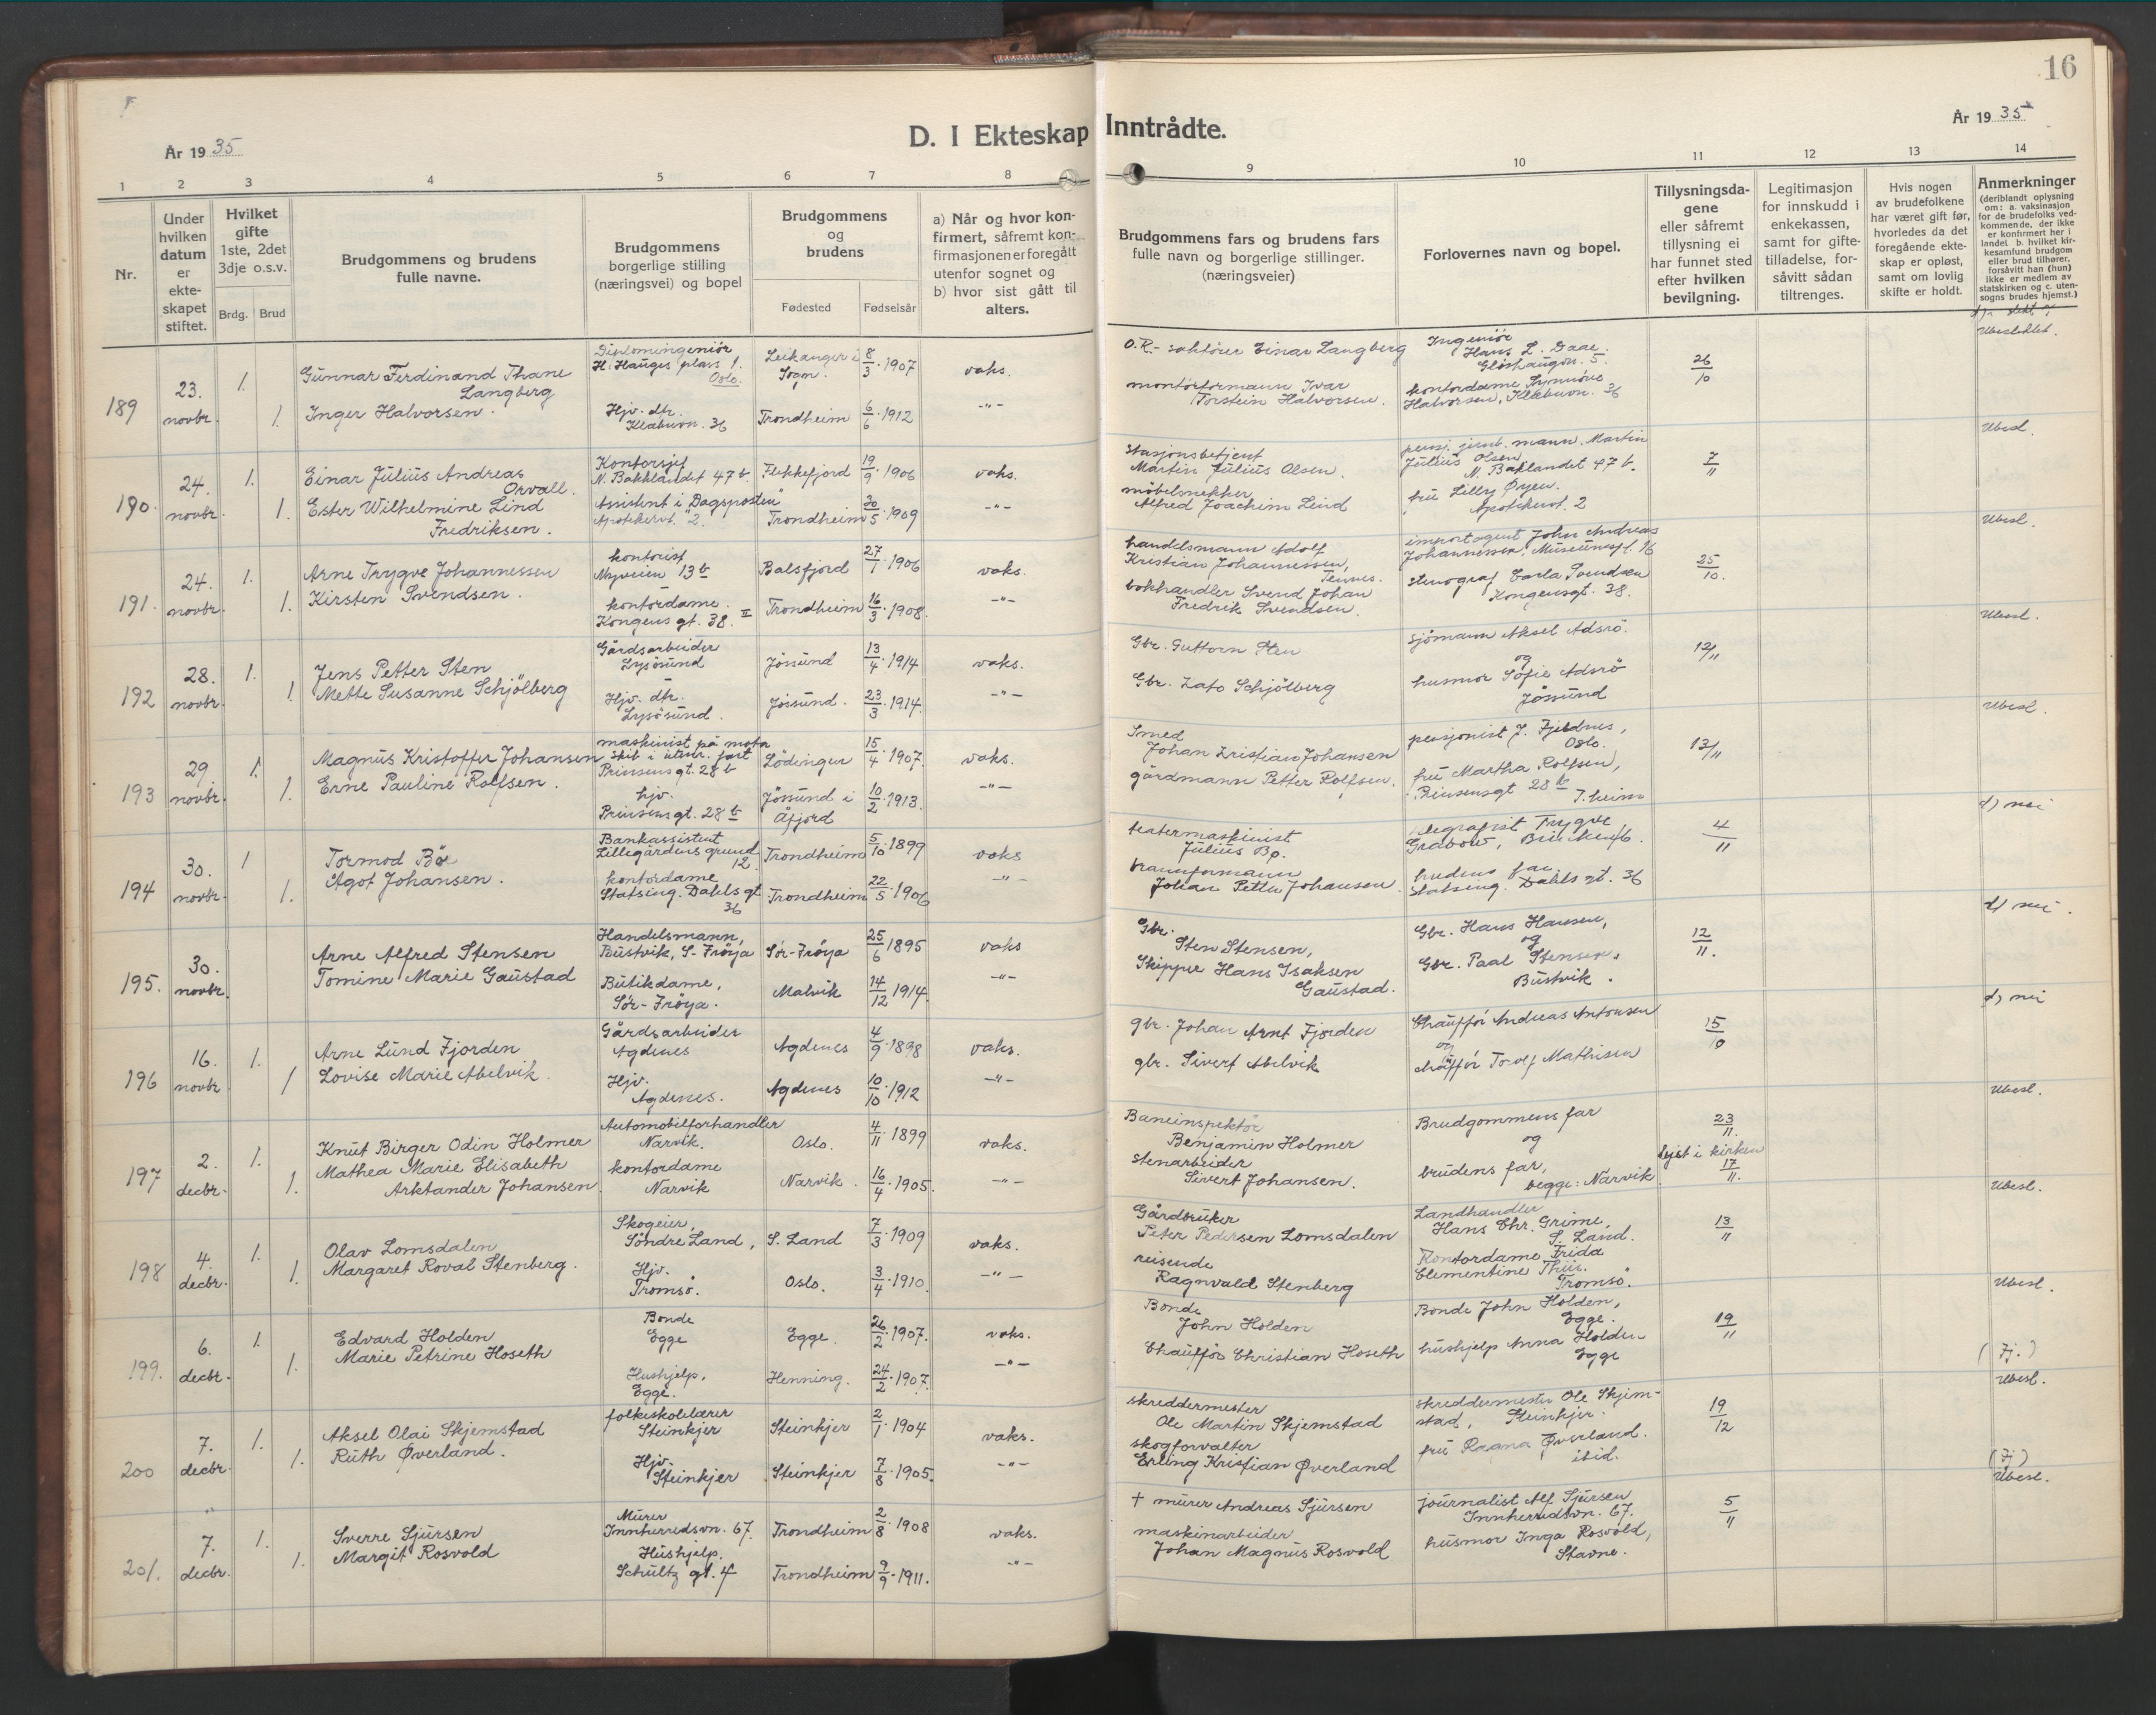 16
År 1935
D. I Ekteskap Inntrådte.
År 1935
1 2 3 4 5 6 7 8 9 10 11 12 13 14
Nr.
Under hvilken datum er ekteskapet stiftet.
Hvilket gifte 1ste, 2det 3dje o.s.v.
Brdg. Brud
Brudgommens og brudens fulle navne.
Brudgommens borgerlige stilling (næringsvei) og bopel
Brudgommens og brudens
Fødested Fødselsår
a) Når og hvor konfirmert, såfremt konfirmasjonen er foregått utenfor sognet og b) hvor sist gått til alters.
Brudgommens fars og brudens fars fulle navn og borgerlige stillinger. (næringsveier)
Forlovernes navn og bopel.
Tillysningsdagene eller såfremt tillysning ei har funnet sted efter hvilken bevilgning.
Legitimasjon for innskudd i enkekassen, samt for giftetilladelse, forsåvitt sådan tiltrenges.
Hvis nogen av brudefolkene har været gift før, hvorledes da det foregående ekteskap er opløst, samt om lovlig skifte er holdt.
Anmerkninger (deriblandt oplysning om: a. vaksinasjon for de brudefolks vedkommende, der ikke er konfirmert her i landet b. hvilket kirkesamfund brudgom eller brud tilhører, forsåvitt han (hun) ikke er medlem av statskirken og c. utensogns brudes hjemst.)
189 23. novbr. 1. 1.
Gunnar Ferdinand Thane Langberg
Inger Halvorsen.
Diplomingeniør H. Hauges plass 1. Oslo.
Hjv. dtr. Klæbuvn. 36
Leikanger i Sogn. 8/3 1907
Trondheim 6/6 1912
vaks.
-"-
O.R.- Einar Langberg
montørformann Ivar Torstein Halvorsen.
Ingeniør Hans L. Daae. Gløshaugvn. 5.
kontordame Synnøve Halvorsen, Klæbuvn. 36
26/10
Ubeslektet.
190. 24. novbr. 1. 1.
Einar Julius Andreas Orvall.
Ester Wilhelmine Lind Fredriksen.
Kontorsjef N. Bakklandet 47 b.
Assistent i "Dagsposten" Apotekervt. 2.
Flekkefjord 19/9 1906
Trondheim 20/5 1909
vaks.
-"-
Stasjonsbetjent Martin Julius Olsen.
møbelsnekker Alfred Joachim Lind
pensj. jernb. mann. Martin Julius Olsen, N. Baklandet 47 b.
fru Lilly Øyen. Apotekervt. 2
7/11
Ubesl.
191. 24. novbr. 1. 1.
Arne Trygve Johannessen
Kirsten Svendsen.
kontorist Nyveien 13 b
kontordame. Kongens gt. 38. II
Balsfjord 27/1 1906
Trondheim 16/3 1908.
vaks.
-"-
handelsmann Adolf Kristian Johannessen, Tennes.
bokhandler Svend Johan Fredrik Svendsen.
importagent John Andreas Johannessen, Museumspl. 16
stenograf Carla Svendsen Kongensgt. 38.
25/10.
Ubesl.
192 28. novbr. 1. 1.
Jens Petter Sten
Mette Susanne Schjölberg
Gårdsarbeider Lysösund
Hjv. dtr. Lysösund.
Jössund 13/4 1914
Jössund. 23/3 1914.
vaks.
-"-
Gbr. Guttorm Sten
Gbr. Lato Schjölberg
sjömann Aksel Adsrö.
og
husmor Sofie Adsrö Jössund
12/11
Ubesl.
193 29 novbr. 1. 1.
Magnus Kristoffer Johansen
Erne Pauline Rolfsen.
maskinist på motor skib i utenr. fart Prinsensgt. 28 b
hjv. Prinsensgt. 28 b
Lödingen 15/4 1907.
Jössund i Åfjord 10/2 1913.
vaks.
-"-
Smed Johan Kristian Johansen
gårdmann Petter Rolfsen.
pensjonist J. Fjeldnes, Oslo.
fru Martha Rolfsen, Prinsensgt 28 b T.heim
13/11
Ubesl.
194 30. novbr. 1 1.
Tormod Bö
Ågot Johansen.
Bankassistent Lillegårdens grund 12.
kontordame Statsing. Dahls gt 36
Trondheim 5/10 1899
Trondheim 22/5 1906
vaks
-"-
teatermaskinist Julius Bø.
brannformann Johan Petter Johansen.
telegrafist Trygve Grabow,
brudens far Statsing. Dahls gt. 36
4/11
d) nei
195. 30. novbr.
Arne Alfred Stensen
Tomine Marie Gaustad
Handelsmann, Bustvik, S-Fröya
Butikdame, Sör-Fröya.
Sör-Fröya 25/6 1895
Malvik 14/12 1914.
vaks
-"-
Gbr. Sten Stensen,
Skipper Hans Isaksen Gaustad.
Gbr. Hans Hansen,
og
Gbr. Paal Stensen, Bustvik.
12/11.
d) nei.
196 16. novbr 1. 1
Arne Lund Fjorden
Lovise Marie Abelvik.
Gårdsarbeider Agdenes
Hjv. Agdenes.
Agdenes 4/9 1898
Agdenes 10/10 1912
vaks.
-"-
gbr. Johan Arnt Fjorden
gbr. Sivert Abelvik
Chauffør Andreas Antonsen
og
chauffør Torolf Mathisen
15/10
d) nei
197 2. decbr. 1. 1.
Knut Birger Odin Holmer
Mathea Marie Elisabeth Arktander Johansen.
Automobilforhandler Narvik.
kontordame Narvik
Oslo. 4/11 1899
Narvik. 16/4 1905.
vaks.
-"-
Baneinspektör Benjamin Holmer
Stenarbeider Sivert Johansen.
Brudgommens far
og
brudens far, begge: Narvik
23/11.
lyst i kirken 17/11.
Ubesl.
198 4. decbr. 1. 1.
Olav Lomsdalen
Margaret Roval Stenberg.
Skogeier, Söndre Land,
Hjv. Tromsö.
S. Land 7/3 1909
Oslo. 3/4 1910.
vaks.
-"-
Gårdbruker Peter Pedersen Lomsdalen
reisende Ragnvald Stenberg
Landhandler Hans Chr. Grime, S. Land.
Kontordame Frida Clementine Thiis. Tromsö.
13/11
Ubesl.
199. 6. decbr. 1. 1.
Edvard Holden
Marie Petrine Hoseth
Bonde Egge
Hushjelp, Egge.
Egge. 26/2 1907.
Henning. 24/2 1907.
vaks.
-"-
Bonde John Holden
Chauffør Christian Hoseth
Bonde John Holden, Egge.
hushjelp Anna Holden Egge
19/11
Ubesl.
(Fj.)
200 7. decbr. 1. 1.
Aksel Olai Skjemstad
Ruth Øverland.
folkeskolelærer Steinkjer
Hjv. Steinkjer
Steinkjer 2/1 1904
Steinkjer 7/8 1905.
vaks.
-"-
skreddermester Ole Martin Skjemstad
skogforvalter Erling Kristian Øverland
skreddermester Ole Skjemstad, Steinkjer.
fru Ragna Øverland. ibid.
19/12
Ubesl.
(Fj)
201. 7. decbr. 1. 1.
Sverre Sjursen
Margit Rosvold
Murer Innherredsvn. 67.
Hushjelp. Schultz gt. 4
Trondheim 2/8 1908
Trondheim 9/9 1911.
vaks.
-"-
† murer Andreas Sjursen
maskinarbeider Johan Magnus Rosvold
journalist Alf Sjursen Innherredsvn. 67.
husmor Inga Rosvold, Stavne.
5/11
Ubesl.